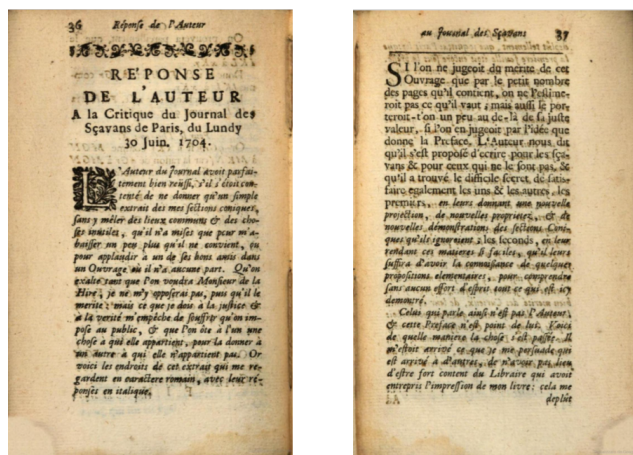 36 Réponse de l'Auteur
RE'PONSE
DE L'AUTEUR
A la Critique du Journal des
Sçavans de Paris, du Lundy
30 Juin. 1704.
L'Auteur du Journal avoit parfai-
tement bien reüssi, s'il s'étoit con-
tenté de ne donner qu'un simple
extrait des mes sections coniques,
sans y mêler des lieux communs & des cho-
ses inutiles, qu'il n'a mises que pour m'a-
baisser un peu plus qu'il ne convient, ou
pour applaudir à un de ses bons amis dans
un Ouvrage où il n'a aucune part. Qu'on
exalte tant que l'on voudra Monsieur de la
Hire; je ne m'y opposerai pas, puis qu'il le
merite: mais ce que je dois à la justice &
à la verité m'empêche de souffrir qu'on im-
pose au public, & que l'on ôte à l'un une
chose à qui elle appartient, pour la donner à
un autre à qui elle n'appartient pas. Or
voici les endroits de cet extrait qui me re-
gardent en caractere romain, avec leur ré-
ponses en italique.
au Journal des Sçavans 37
SI l'on ne jugeoit du merite de cet
Ouvrage que par le petit nombre
des pages qu'il contient, on ne l'estime-
roit pas ce qu'il vaut; mais aussi se por-
teroit-t'on un peu au de-là de sa juste
valeur, si l'on en jugeoit par l'idée que
donne la Preface. L'Auteur nous dit
qu'il s'est proposé d'écrire pour les sça-
vans & pour ceux qui ne le sont pas, &
qu'il a trouvé le difficile secret de satis-
faire également les uns & les autres, les
premiers, en leurs donnant une nouvelle
projection, de nouvelles proprietez, & de
nouvelles démonstrations des sections Coni-
ques qu'ils ignoroient; les seconds, en leur
rendant ces matieres si faciles, qu'il leurs
suffira d'avoir la connoissance de quelques
propositions elementaires, pour comprendre
sans aucun effort d'esprit tout ce qui est ici
demontré.
Celui qui parle ainsi n'est pas l'Auteur,
& cette Preface n'est point de lui. Voici
de quelle maniere la chose s'est passée. Il
m'étoit arrivé ce que je me persuade qui
est arrivé à d'autres, de n'avoir pas lieu
d'estre fort content du Libraire qui avoit
entrepris l'impression de mon livre: cela me
deplût